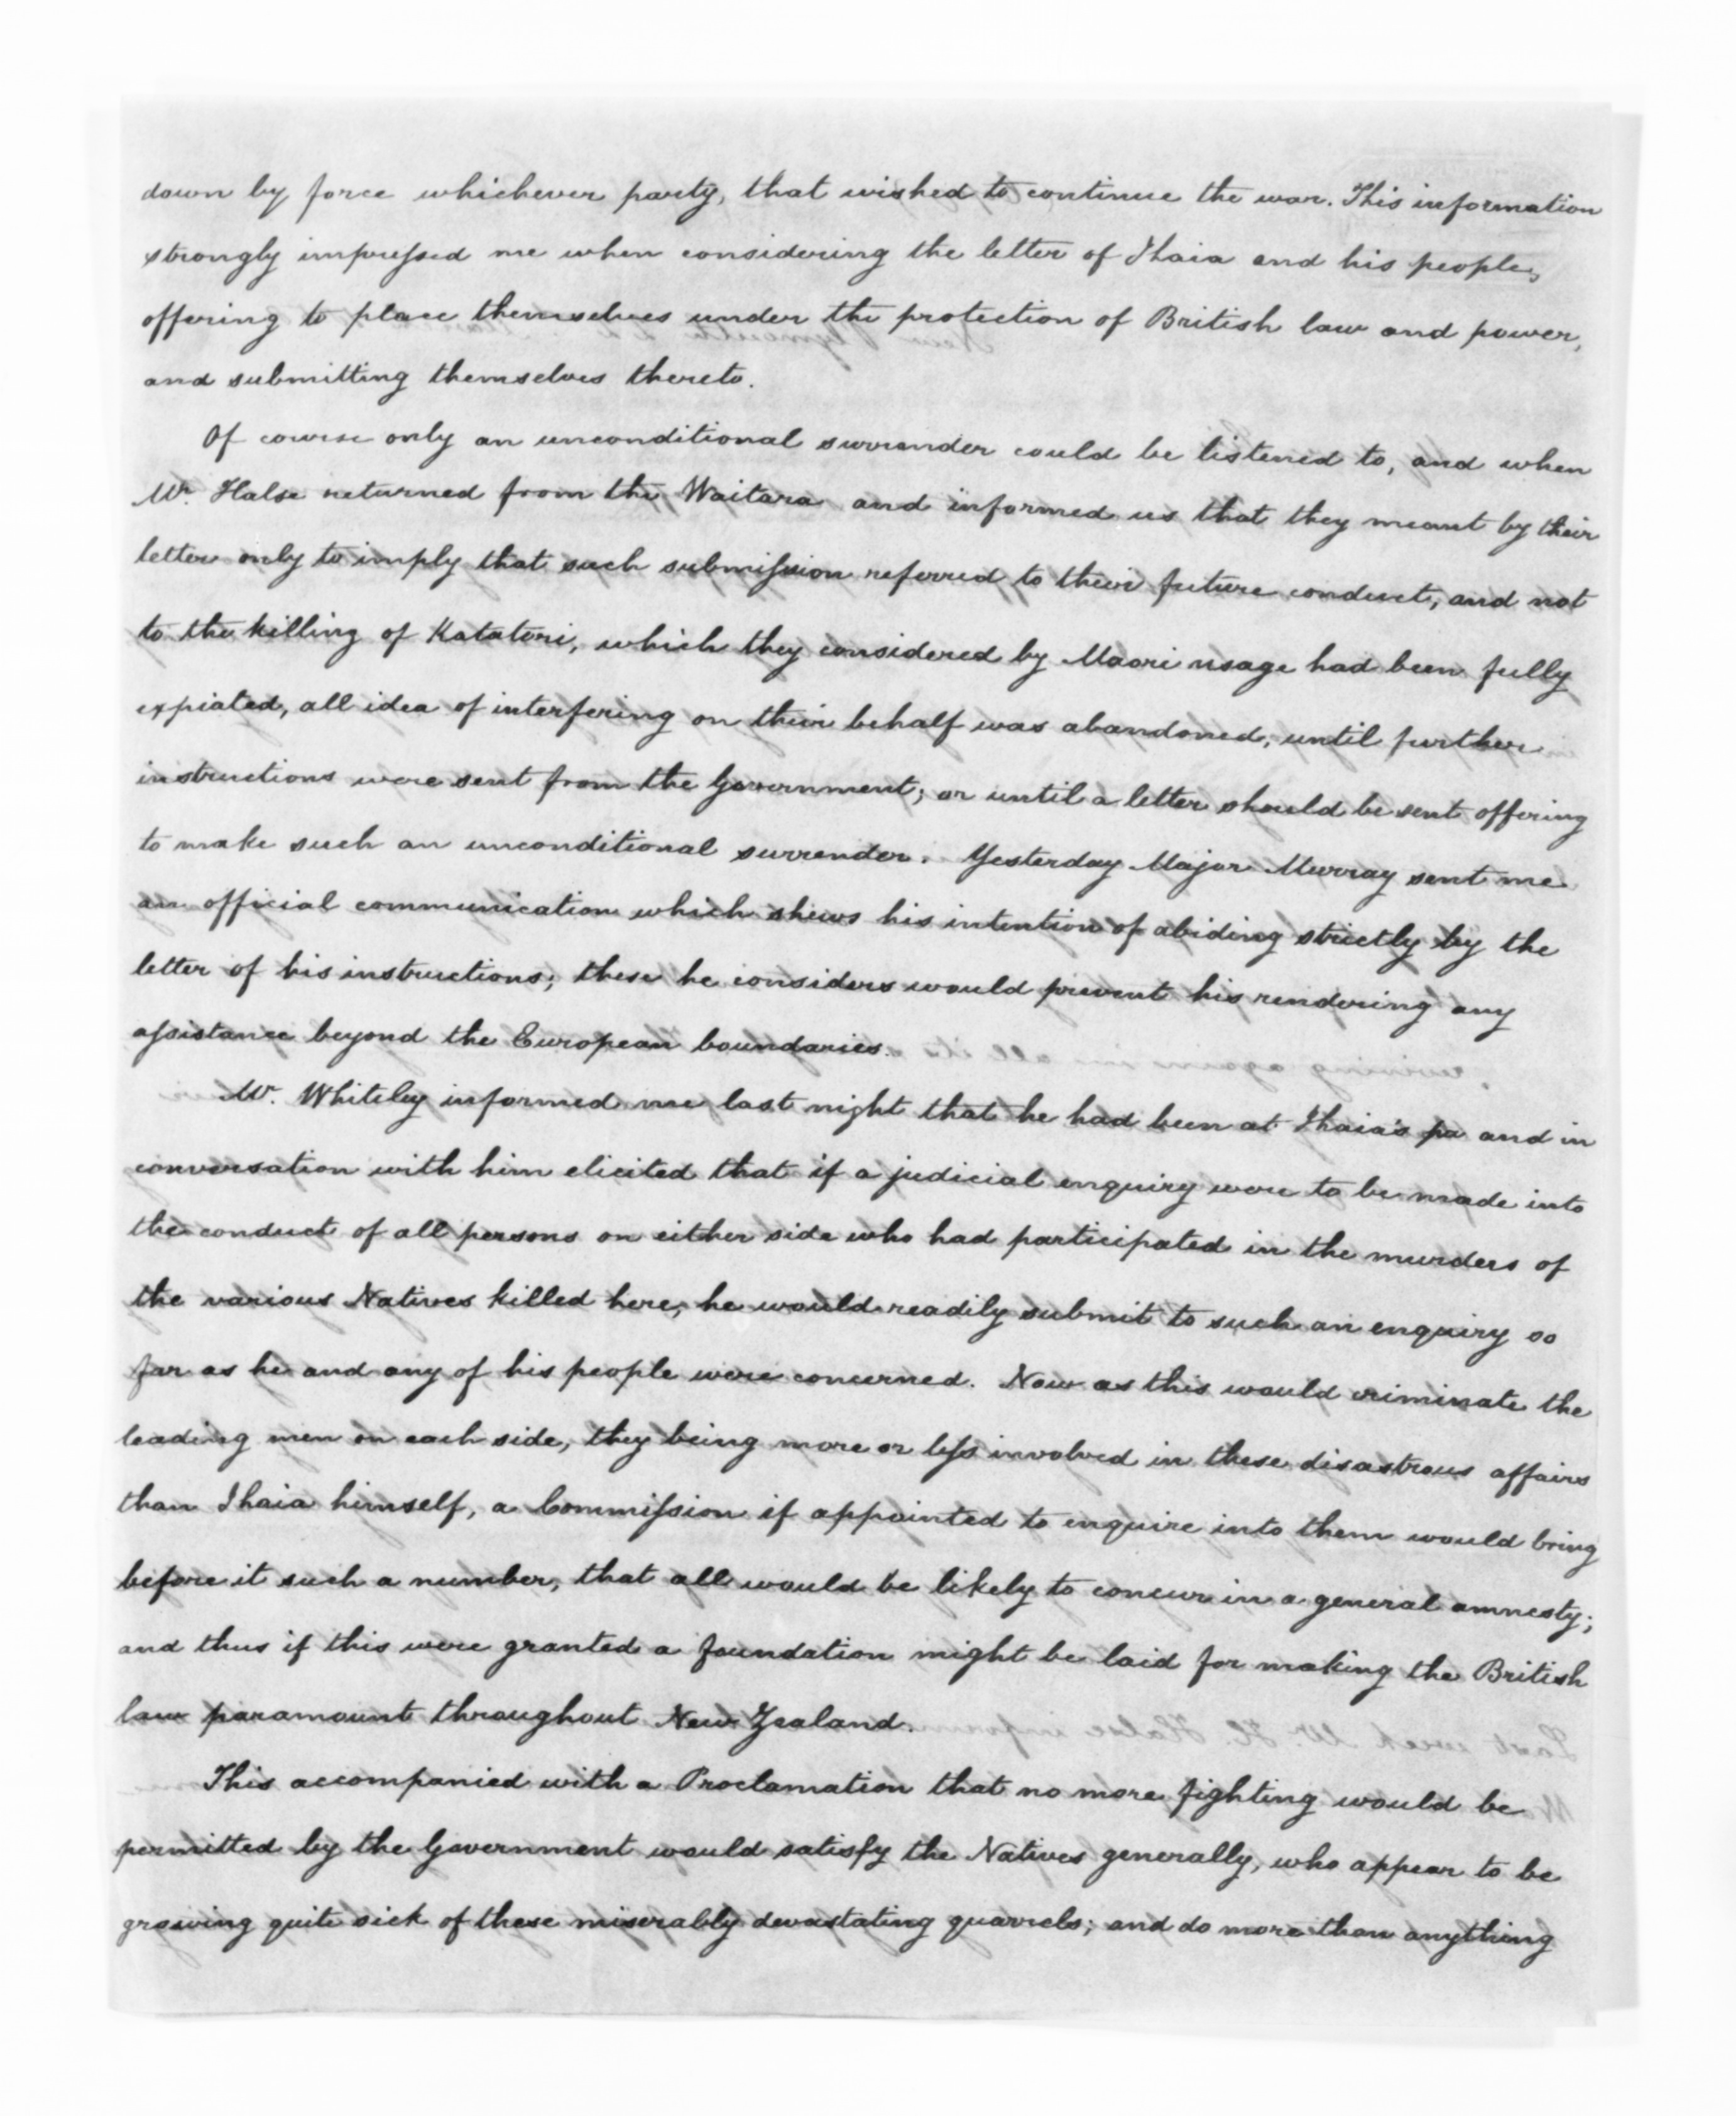 down by force whichever party, that wished to continue the war. This information
strongly impressed me when considering the letter of Ihaia and his people,
offering to place themselves under the protection of British law and power,
and submitting themselves thereto.
Of course only an unconditional surrender could be listened to, and when
Mr. Halse returned from the Waitara and informed us that they meant by their
letter only to imply that such submission referred to their future conduct, and not
to the killing of Katatori, which they considered by Maori usage had been fully
expiated, all idea of interfering on their behalf was abandoned, until further
instructions were sent from the Government; or until a letter should be sent offering
to make such an unconditional surrender. Yesterday Major Murray sent me
an official communication which shews his intention of abiding strictly by the
letter of his instructions; these he considers would prevent his rendering any
assistance beyond the European boundaries.
Mr. Whiteley informed me last night that he had been at Ihaia's pa and in
conversation with him elicited that if a judicial enquiry were to be made into
the conduct of all persons on either side who had participated in the murders of
the various Natives killed here, he would readily submit to such an enquiry so
far as he and any of his people were concerned. Now as this would criminate the
leading men on each side, they being more or less involved in these disastrous affairs
than Ihaia himself, a Commission if appointed to enquire into them would bring
before it such a number, that all would be likely to concur in a general amnesty;
and thus if this were granted a foundation might be laid for making the British
law paramount throughout New Zealand.
This accompanied with a Proclamation that no more fighting would be
permitted by the Government would satisfy the Natives generally, who appear to be
growing quite sick of these miserably devastating quarrels; and do more than anything